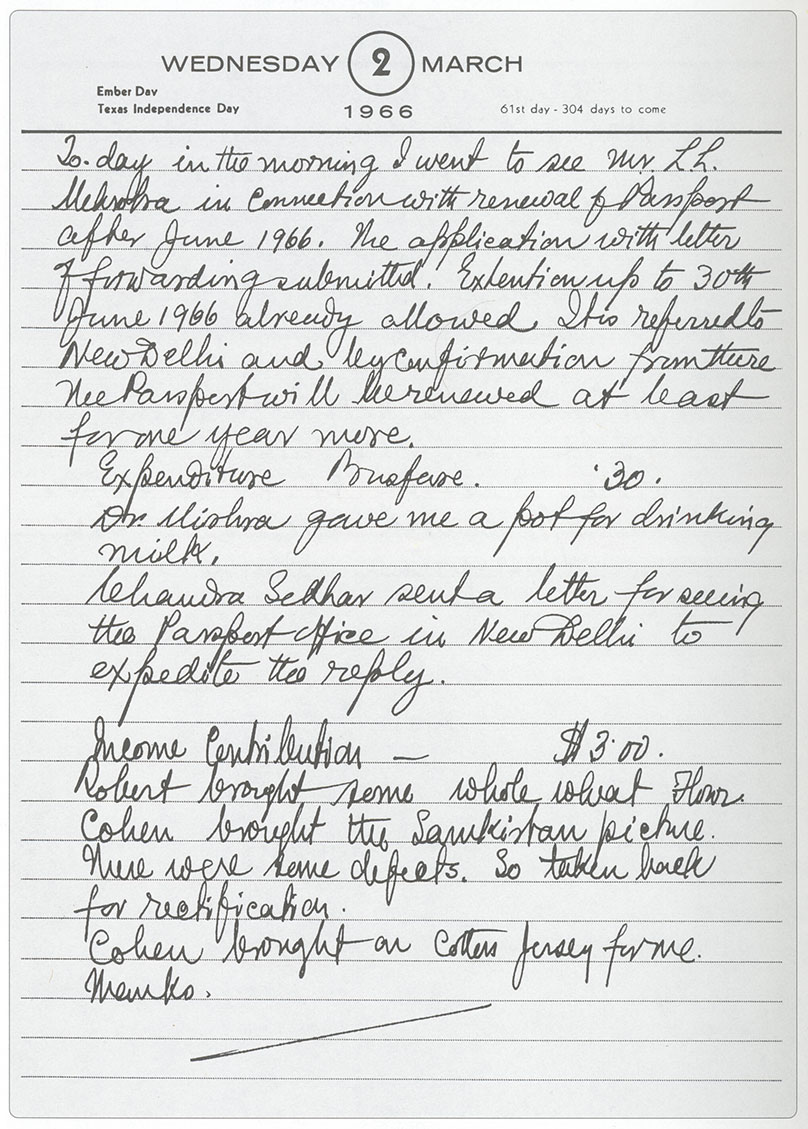 WEDNESDAY 2 MARCH
Ember Day
Texas Independence Day
1966
61st day - 304 days to come
To-day in the morning I went to see Mr. L.L.
Mehrotra in connection with renewal of Passport
after June 1966. The application with letter
of forwarding submitted. Extention up to 30th
June 1966 already allowed. It is referred to
New Delhi and by confirmation from there
the Passport will be renewed at least
for one year more.
Expenditure Busfare. .30.
Dr. Mishra gave me a pot for drinking
milk.
Chandra Sekhar sent a letter for seeing
the Passport office in New Delhi to
expedite the reply.
Income Contribution — $3.00.
Robert brought some whole wheat Flour.
Cohen brought the Samkirtan picture.
There were some defects. So taken back
for rectification.
Cohen brought on Jersey for me.
Thanks.